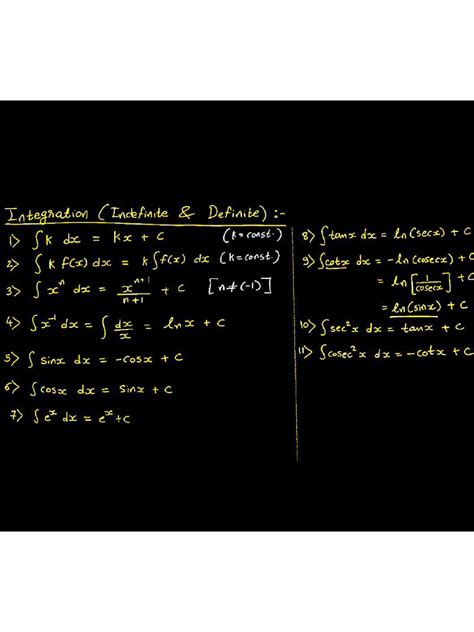 Integration (Indefinite & Definite) :-
1) ∫ K dx = Kx + C (K = const.)
2) ∫ K f(x) dx = K ∫ f(x) dx (K = const.)
3) ∫ xⁿ dx = xⁿ⁺¹/n+1 + C [n ≠ (-1)]
4) ∫ x⁻¹ dx = ∫ dx/x = ln x + C
5) ∫ sinx dx = -cosx + C
6) ∫ cosx dx = sinx + C
7) ∫ eˣ dx = eˣ + C
8) ∫ tanx dx = ln(secx) + C
9) ∫ cotx dx = -ln(cosecx) + C
= ln[1/cosecx] + C
= ln(sinx) + C
10) ∫ sec²x dx = tanx + C
11) ∫ cosec²x dx = -cotx + C